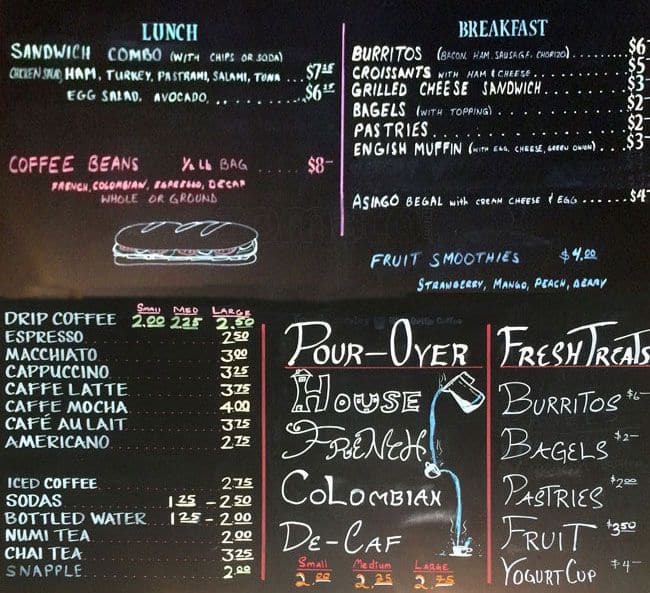 LUNCH
SANDWICH COMBO (WITH CHIPS OR SODA)
CHICKEN SALAD, HAM, TURKEY, PASTRAMI, SALAMI, TUNA ... $7.25
EGG SALAD, AVOCADO, ......... $6.25
COFFEE BEANS ½ lb BAG ..... $8-
FRENCH, COLOMBIAN, ESPRESSO, DECAF
WHOLE OR GROUND
BREAKFAST
BURRITOS (BACON, HAM, SAUSAGE, CHORIZO) ........ $6-
CROISSANTS WITH HAM & CHEESE ........... $5-
GRILLED CHEESE SANDWICH ......... $3-
BAGELS (WITH TOPPING) ............ $2-
PASTRIES ................ $2-
ENGISH MUFFIN (WITH EGG, CHEESE, GREEN ONION) .... $3-
ASIAGO BEGAL with CREAM CHEESE & EGG ..... $4-
FRUIT SMOOTHIES $4.00
STRAWBERRY, MANGO, PEACH, BERRY
Small Med Large
DRIP COFFEE 2.00 2.25 2.50
ESPRESSO 2.50
MACCHIATO 3.00
CAPPUCCINO 3.25
CAFFE LATTE 3.75
CAFFE MOCHA 4.00
CAFÉ AU LAIT 3.75
AMERICANO 2.75
ICED COFFEE 2.75
SODAS 1.25 - 2.50
BOTTLED WATER 1.25 - 2.00
NUMI TEA 2.00
CHAI TEA 3.25
SNAPPLE 2.00
POUR-OVER
HOUSE
FRENCH
COLOMBIAN
DE-CAF
Small Medium Large
2.00 2.25 2.75
FRESH TREATS
BURRITOS $6-
BAGELS $2-
PASTRIES $2.00
FRUIT $3.50
YOGURT CUP $4-